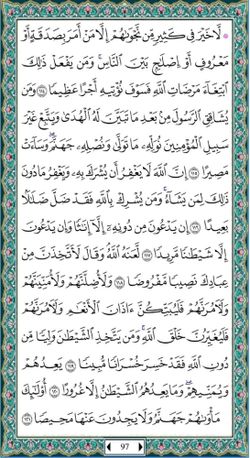 ۞ لَّا خَيْرَ فِى كَثِيرٍ مِّن نَّجْوَىٰهُمْ إِلَّا مَنْ أَمَرَ بِصَدَقَةٍ أَوْ
مَعْرُوفٍ أَوْ إِصْلَٰحٍۭ بَيْنَ ٱلنَّاسِ ۚ وَمَن يَفْعَلْ ذَٰلِكَ
ٱبْتِغَآءَ مَرْضَاتِ ٱللَّهِ فَسَوْفَ نُؤْتِيهِ أَجْرًا عَظِيمًا ١١٤ وَمَن
يُشَاقِقِ ٱلرَّسُولَ مِنۢ بَعْدِ مَا تَبَيَّنَ لَهُ ٱلْهُدَىٰ وَيَتَّبِعْ غَيْرَ
سَبِيلِ ٱلْمُؤْمِنِينَ نُوَلِّهِۦ مَا تَوَلَّىٰ وَنُصْلِهِۦ جَهَنَّمَ ۖ وَسَآءَتْ
مَصِيرًا ١١٥ إِنَّ ٱللَّهَ لَا يَغْفِرُ أَن يُشْرَكَ بِهِۦ وَيَغْفِرُ مَا دُونَ
ذَٰلِكَ لِمَن يَشَآءُ ۚ وَمَن يُشْرِكْ بِٱللَّهِ فَقَدْ ضَلَّ ضَلَٰلًۢا
بَعِيدًا ١١٦ إِن يَدْعُونَ مِن دُونِهِۦٓ إِلَّآ إِنَٰثًا وَإِن يَدْعُونَ
إِلَّا شَيْطَٰنًا مَّرِيدًا ١١٧ لَّعَنَهُ ٱللَّهُ ۘ وَقَالَ لَأَتَّخِذَنَّ مِنْ
عِبَادِكَ نَصِيبًا مَّفْرُوضًا ١١٨ وَلَأُضِلَّنَّهُمْ وَلَأُمَنِّيَنَّهُمْ
وَلَءَامُرَنَّهُمْ فَلَيُبَتِّكُنَّ ءَاذَانَ ٱلْأَنْعَٰمِ وَلَءَامُرَنَّهُمْ
فَلَيُغَيِّرُنَّ خَلْقَ ٱللَّهِ ۚ وَمَن يَتَّخِذِ ٱلشَّيْطَٰنَ وَلِيًّا مِّن
دُونِ ٱللَّهِ فَقَدْ خَسِرَ خُسْرَانًا مُّبِينًا ١١٩ يَعِدُهُمْ
وَيُمَنِّيهِمْ ۖ وَمَا يَعِدُهُمُ ٱلشَّيْطَٰنُ إِلَّا غُرُورًا ١٢٠ أُو۟لَٰٓئِكَ
مَأْوَىٰهُمْ جَهَنَّمُ وَلَا يَجِدُونَ عَنْهَا مَحِيصًا ١٢١
97